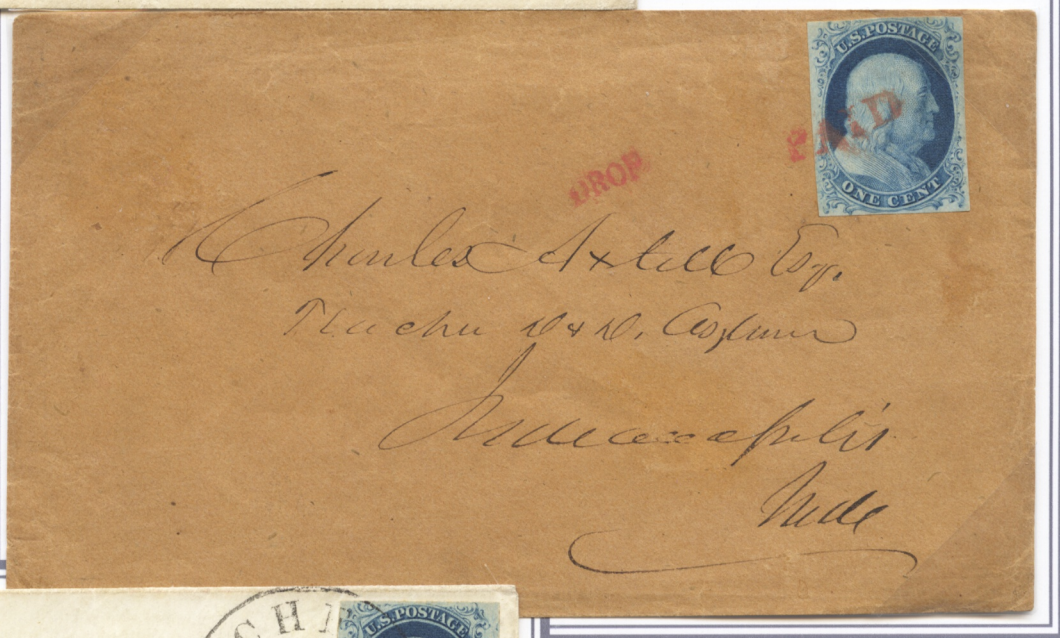 U.S. POSTAGE
PAID
ONE CENT
DROP
Charles Axtell Esqr.
Teacher D & D. Asylum
Indianapolis
Inde
CH
U.S. POSTAGE